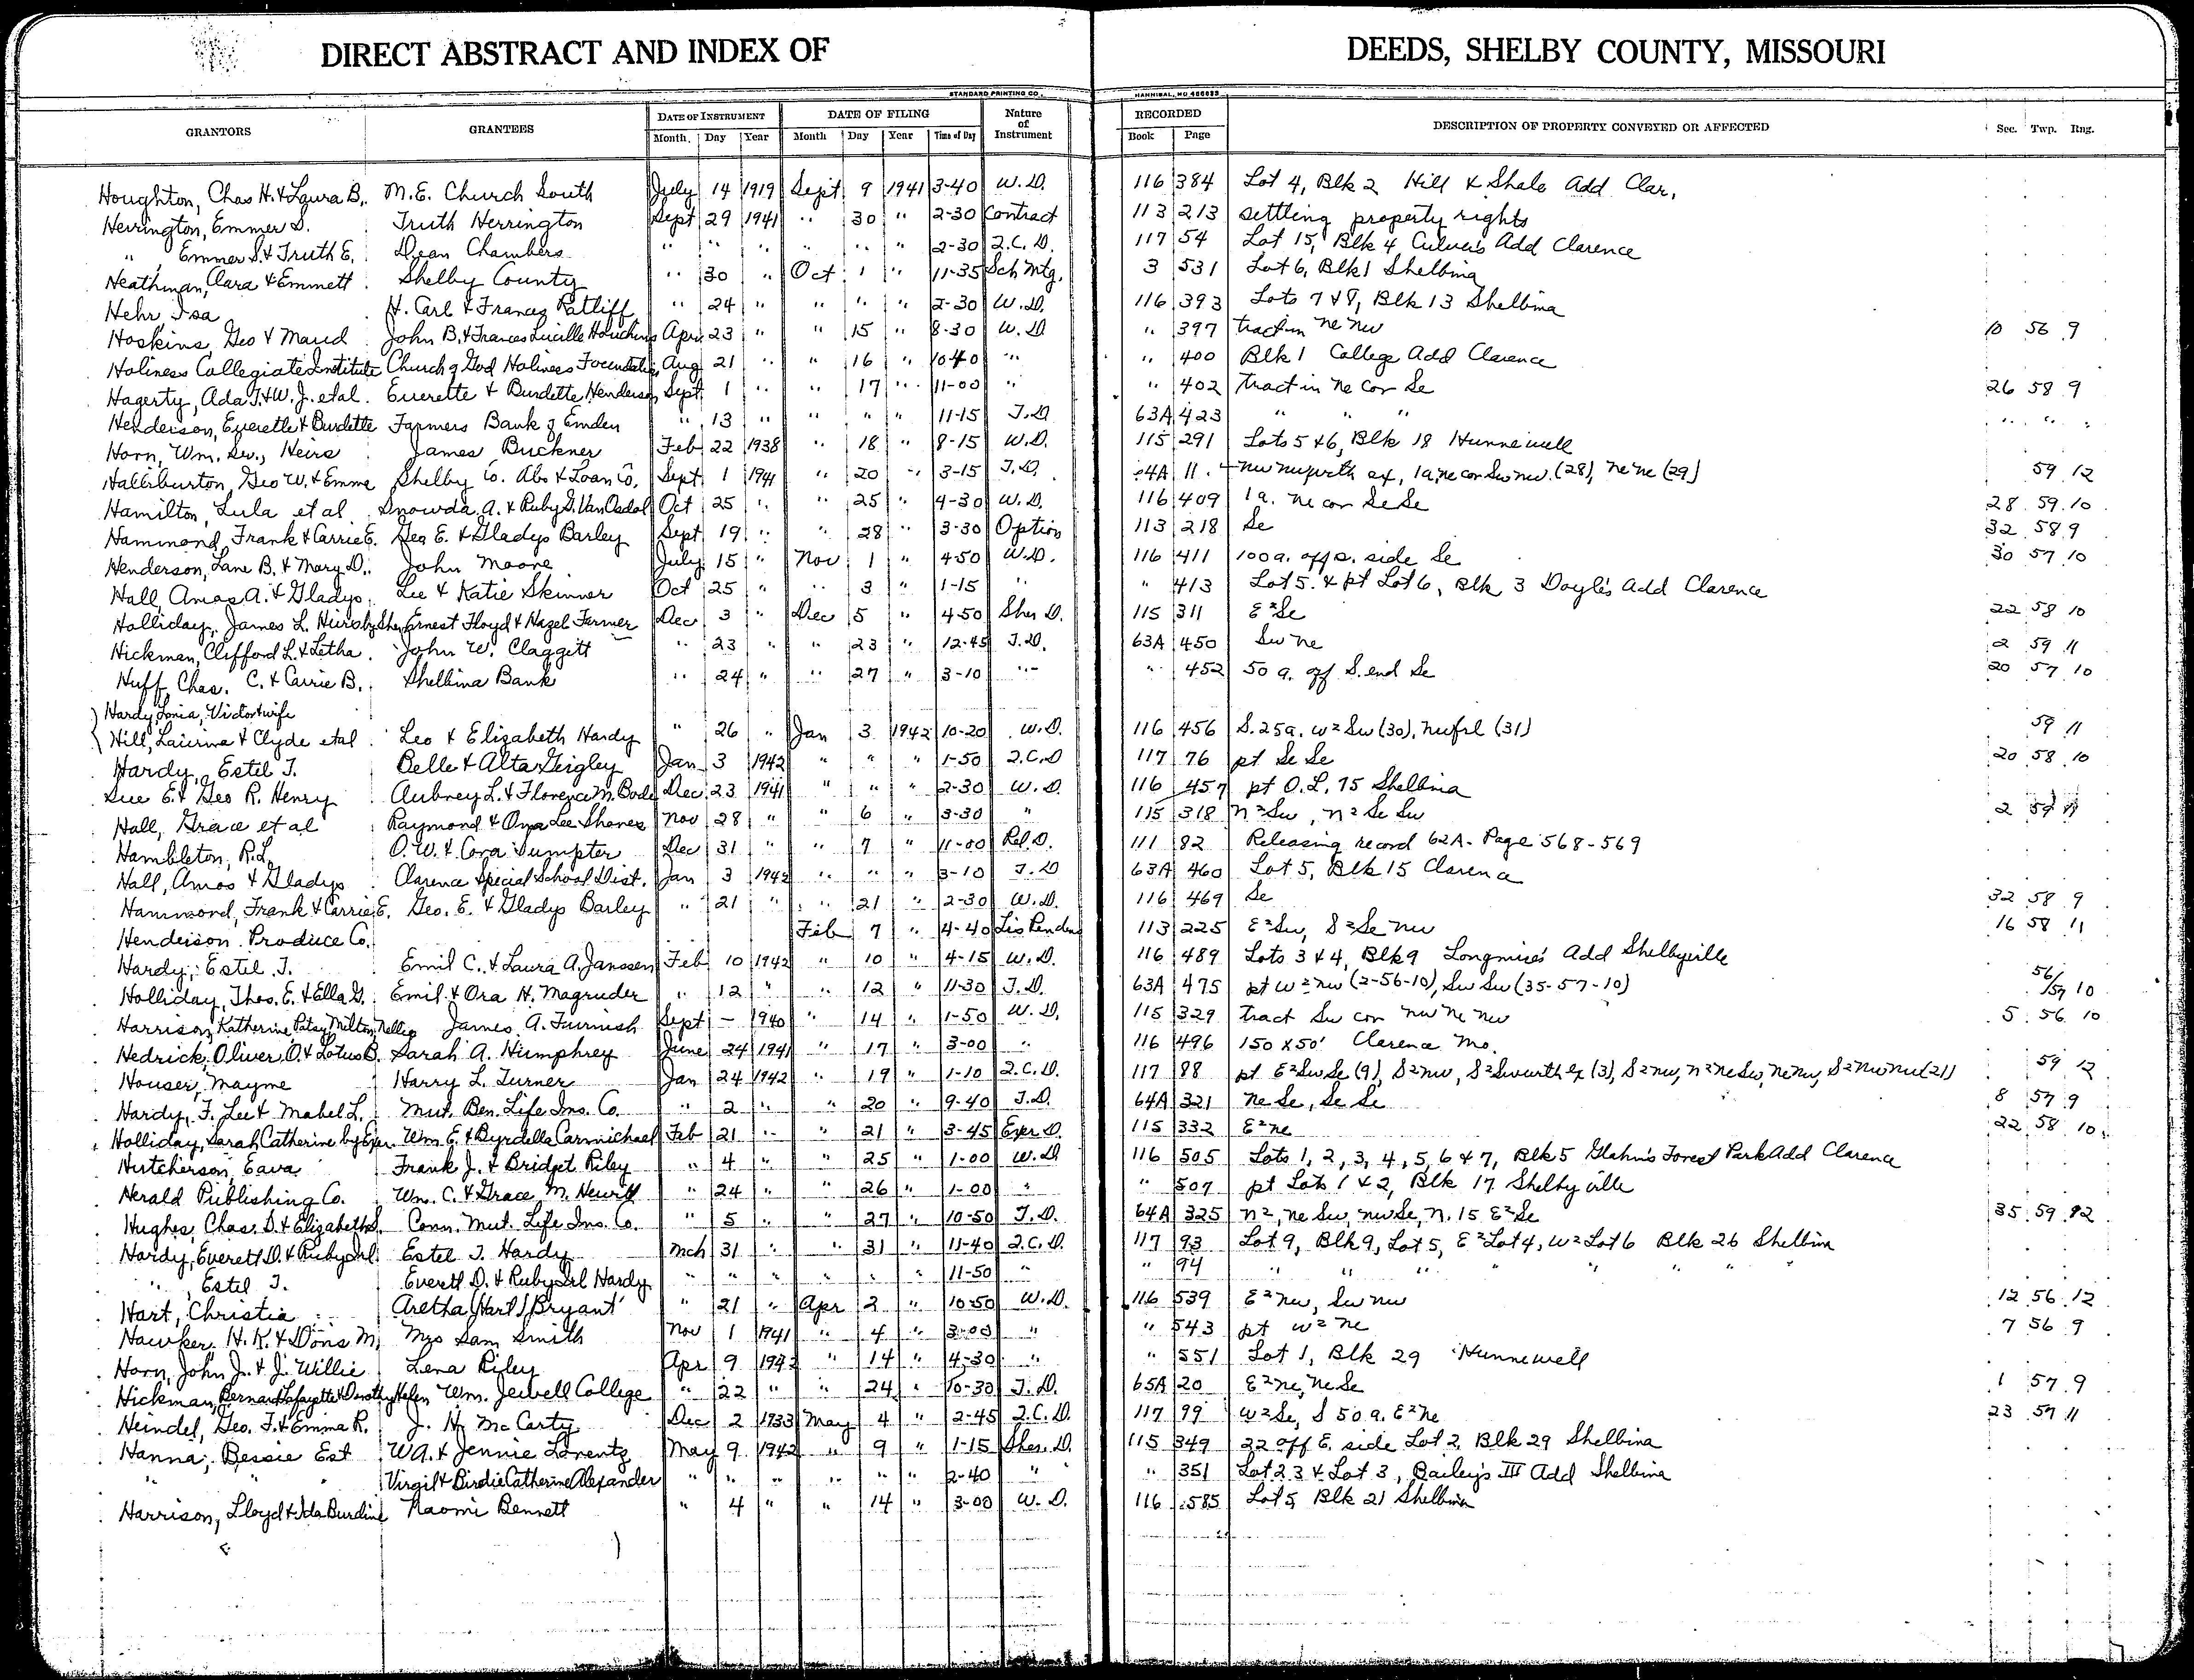 DIRECT ABSTRACT AND INDEX OF DEEDS, SHELBY COUNTY, MISSOURI
STANDARD PRINTING CO., HANNIBAL, MO
GRANTORS GRANTEES DATE OF INSTRUMENT DATE OF FILING Nature of Instrument RECORDED DESCRIPTION OF PROPERTY CONVEYED OR AFFECTED Sec. Twp. Rng.
Month Day Year Month Day Year Time of Day Book Page
Houghton, Chas H. & Laura B. M.E. Church South July 14 1919 Sept 9 1941 3-40 W.D. 116 384 Lot 4, Blk 2 Hill & Shale Add Clar.
Herrington, Emmer S. Truth Herrington Sept 29 1941 " 30 " 2-30 Contract 113 213 settling property rights
" , Emmer S. & Truth E. Dean Chambers " " " " " " 2-30 Q.C.D. 117 54 Lot 15, Blk 4, Culver's Add Clarence
Heathman, Clara & Emmett Shelby County " 30 " Oct 1 " 11-35 Sch Mtg. 3 531 Lot 6, Blk 1 Shelbina
Hehr Isa H. Carl & Frances Ratliff " 24 " " " " 2-30 W.D. 116 393 Lots 7 & 8, Blk 13 Shelbina
Hoskins, Geo & Maud John B. & Frances Lucille Houchins Apr 23 " " 15 " 8-30 W.D " 397 tract in ne nw 10 56 9
Holiness Collegiate Institute Church of God Holiness Foundation Aug 21 " " 16 " 10-40 " " 400 Blk 1 College Add Clarence
Hagerty, Ada T. & W.J. etal. Everette & Burdette Henderson Sept 1 " " 17 " 11-00 " " 402 tract in ne cor Se 26 58 9
Henderson, Everette & Burdette Farmers Bank of Emden " 13 " " " " 11-15 T.D 63A 423 " " " " " "
Horn, Wm. Sw., Heirs James Buckner Feb 22 1938 " 18 " 8-15 W.D. 115 291 Lots 5 & 6, Blk 18 Hunnewell
Halliburton, Geo W. & Emma Shelby Co. Abs & Loan Co. Sept 1 1941 " 20 " 3-15 T.D. 64A 11 nw nw, ex, 1a, ne cor Sw nw. (28), ne ne (29) 59 12
Hamilton, Lula et al Snowda A. & Ruby G. Van Osdol Oct 25 " " 25 " 4-30 W.D. 116 409 1a. ne cor Se Se 28 59 10
Hammond, Frank & Carrie E. Geo E. & Gladys Barley Sept 19 " " 28 " 3-30 Option 113 218 Se 32 58 9
Henderson, Lane B. & Mary D. John Moore July 15 " Nov 1 " 4-50 W.D. 116 411 100 a. off s. side Se 30 57 10
Hall, Amos A. & Gladys Lee & Katie Skinner Oct 25 " " 3 " 1-15 " " 413 Lot 5. & pt Lot 6, Blk 3 Doyle's Add Clarence
Holliday, James L. Heirs by Sher Ernest Floyd & Hazel Farmer Dec 3 " Dec 5 " 4-50 Sher D. 115 311 E²Se 22 58 10
Hickman, Clifford L. & Letha John W. Claggett " 23 " " 23 " 12-45 T.D. 63A 450 Sw ne 2 59 11
Huff, Chas. C. & Carrie B. Shelbina Bank " 24 " " 27 " 3-10 " " 452 50 a. off S. end Se 20 57 10
Hardy, Lonia, Victor & wife
Hill, Laurina & Clyde etal Leo & Elizabeth Hardy " 26 " Jan 3 1942 10-20 W.D. 116 456 S. 25a. W²Sw (30), nw frl (31) 59 11
Hardy, Estel T. Belle & Alta Geigley Jan 3 1942 " " " 1-50 Q.C.D 117 76 pt Se Se 20 58 10
Sue E. & Geo R. Henry Aubrey L. & Florence M. Bode Dec 23 1941 " " " 2-30 W.D. 116 457 pt O.L. 75 Shelbina
Hall, Grace et al Raymond & Ona Lee Shanes Nov 28 " " 6 " 3-30 " 115 318 n²Sw, n²Se Sw 2 59 11
Hambleton, R.L. O.W. & Cora Sumpter Dec 31 " " 7 " 11-00 Rel.D. 111 82 Releasing record 62A- Page 568-569
Hall, Amos & Gladys Clarence Special School Dist. Jan 3 1942 " " " 3-10 T.D 63A 460 Lot 5, Blk 15 Clarence
Hammond, Frank & Carrie E. Geo. E. & Gladys Barley " 21 " " 21 " 2-30 W.D. 116 469 Se 32 58 9
Henderson Produce Co. Feb 7 " 4-40 Lis Pendens 113 225 E²Sw, S²Se nw 16 58 11
Hardy, Estel T. Emil C. & Laura A. Janssen Feb 10 1942 " 10 " 4-15 W.D. 116 489 Lots 3 & 4, Blk 9 Longmire's Add Shelbyville
Holliday, Thos. E. & Ella G. Emil & Ora H. Magruder " 12 " " 12 " 11-30 T.D. 63A 475 pt W²nw (2-56-10), Sw Sw (35-57-10) 56/57 10
Harrison, Katherine, Patsy, Milton, Nellie James A. Furnish Sept - 1940 " 14 " 1-50 W.D. 115 329 tract Sw cor nw ne nw 5 56 10
Hedrick, Oliver O. & Lotus B. Sarah A. Humphrey June 24 1941 " 17 " 3-00 " 116 496 150 x 50' Clarence Mo.
Houser, Mayme Harry L. Turner Jan 24 1942 " 19 " 1-10 Q.C.D. 117 88 pt E²Sw Se (9), S²nw, S²Sw ex (3), S²nw, n²ne Sw, ne nw, S²nw nw (21) 59 12
Hardy, F. Lee & Mabel L. Mut. Ben. Life Ins. Co. " 2 " " 20 " 9-40 T.D. 64A 321 ne Se, Se Se 8 57 9
Holliday, Sarah Catherine by Exr. Wm E. & Byrdella Carmichael Feb 21 " " 21 " 3-45 Exr D. 115 332 E²ne 22 58 10
Hutcherson, Eava Frank J. & Bridget Riley " 4 " " 25 " 1-00 W.D 116 505 Lots 1, 2, 3, 4, 5, 6 & 7, Blk 5 Glahn's Forest Park Add Clarence
Herald Publishing Co. Wm. C. & Grace M. Hewitt " 24 " " 26 " 1-00 " " 507 pt Lots 1 & 2, Blk 17 Shelbyville
Hughes, Chas. D. & Elizabeth S. Conn. Mut. Life Ins. Co. " 5 " " 27 " 10-50 T.D. 64A 325 n², ne Sw, nw Se, n. 15 E²Se 35 59 12
Hardy, Everett D. & Ruby Irl Estel T. Hardy Mch 31 " " 31 " 11-40 Q.C.D. 117 93 Lot 9, Blk 9, Lot 5, E²Lot 4, W²Lot 6 Blk 26 Shelbina
" , Estel T. Everett D. & Ruby Irl Hardy " " " " " " 11-50 " " 94 " " " " " " "
Hart, Christia Aretha (Hart) Bryant " 21 " Apr 2 " 10-50 W.D. 116 539 E²nw, Sw nw 12 56 12
Hawker, H.K. & Doris M. Mrs Sam Smith Nov 1 1941 " 4 " 3-00 " " 543 pt W²ne 7 56 9
Horn, John J. & J. Willie Lena Riley Apr 9 1942 " 14 " 4-30 " " 551 Lot 1, Blk 29 Hunnewell
Hickman, Bernard Lafayette & Dorothy Helen Wm. Jewell College " 22 " " 24 " 10-30 T.D. 65A 20 E²ne, ne Se 1 57 9
Heindel, Geo. T. & Emma R. J. H. McCarty Dec 2 1933 May 4 " 2-45 Q.C.D. 117 99 W²Se, S 50 a. E²ne 23 57 11
Hanna, Bessie Est W.A. & Jennie Lorentz May 9 1942 " 9 " 1-15 Sher. D. 115 349 22 off E. side Lot 2 Blk 29 Shelbina
" " " Virgil & Birdie Catherine Alexander " " " " " " 2-40 " " 351 Lot 23 & Lot 3, Bailey's III Add Shelbina
Harrison, Lloyd & Ida Burdine Naomi Bennett " 4 " " 14 " 3-00 W.D. 116 585 Lot 5 Blk 21 Shelbina